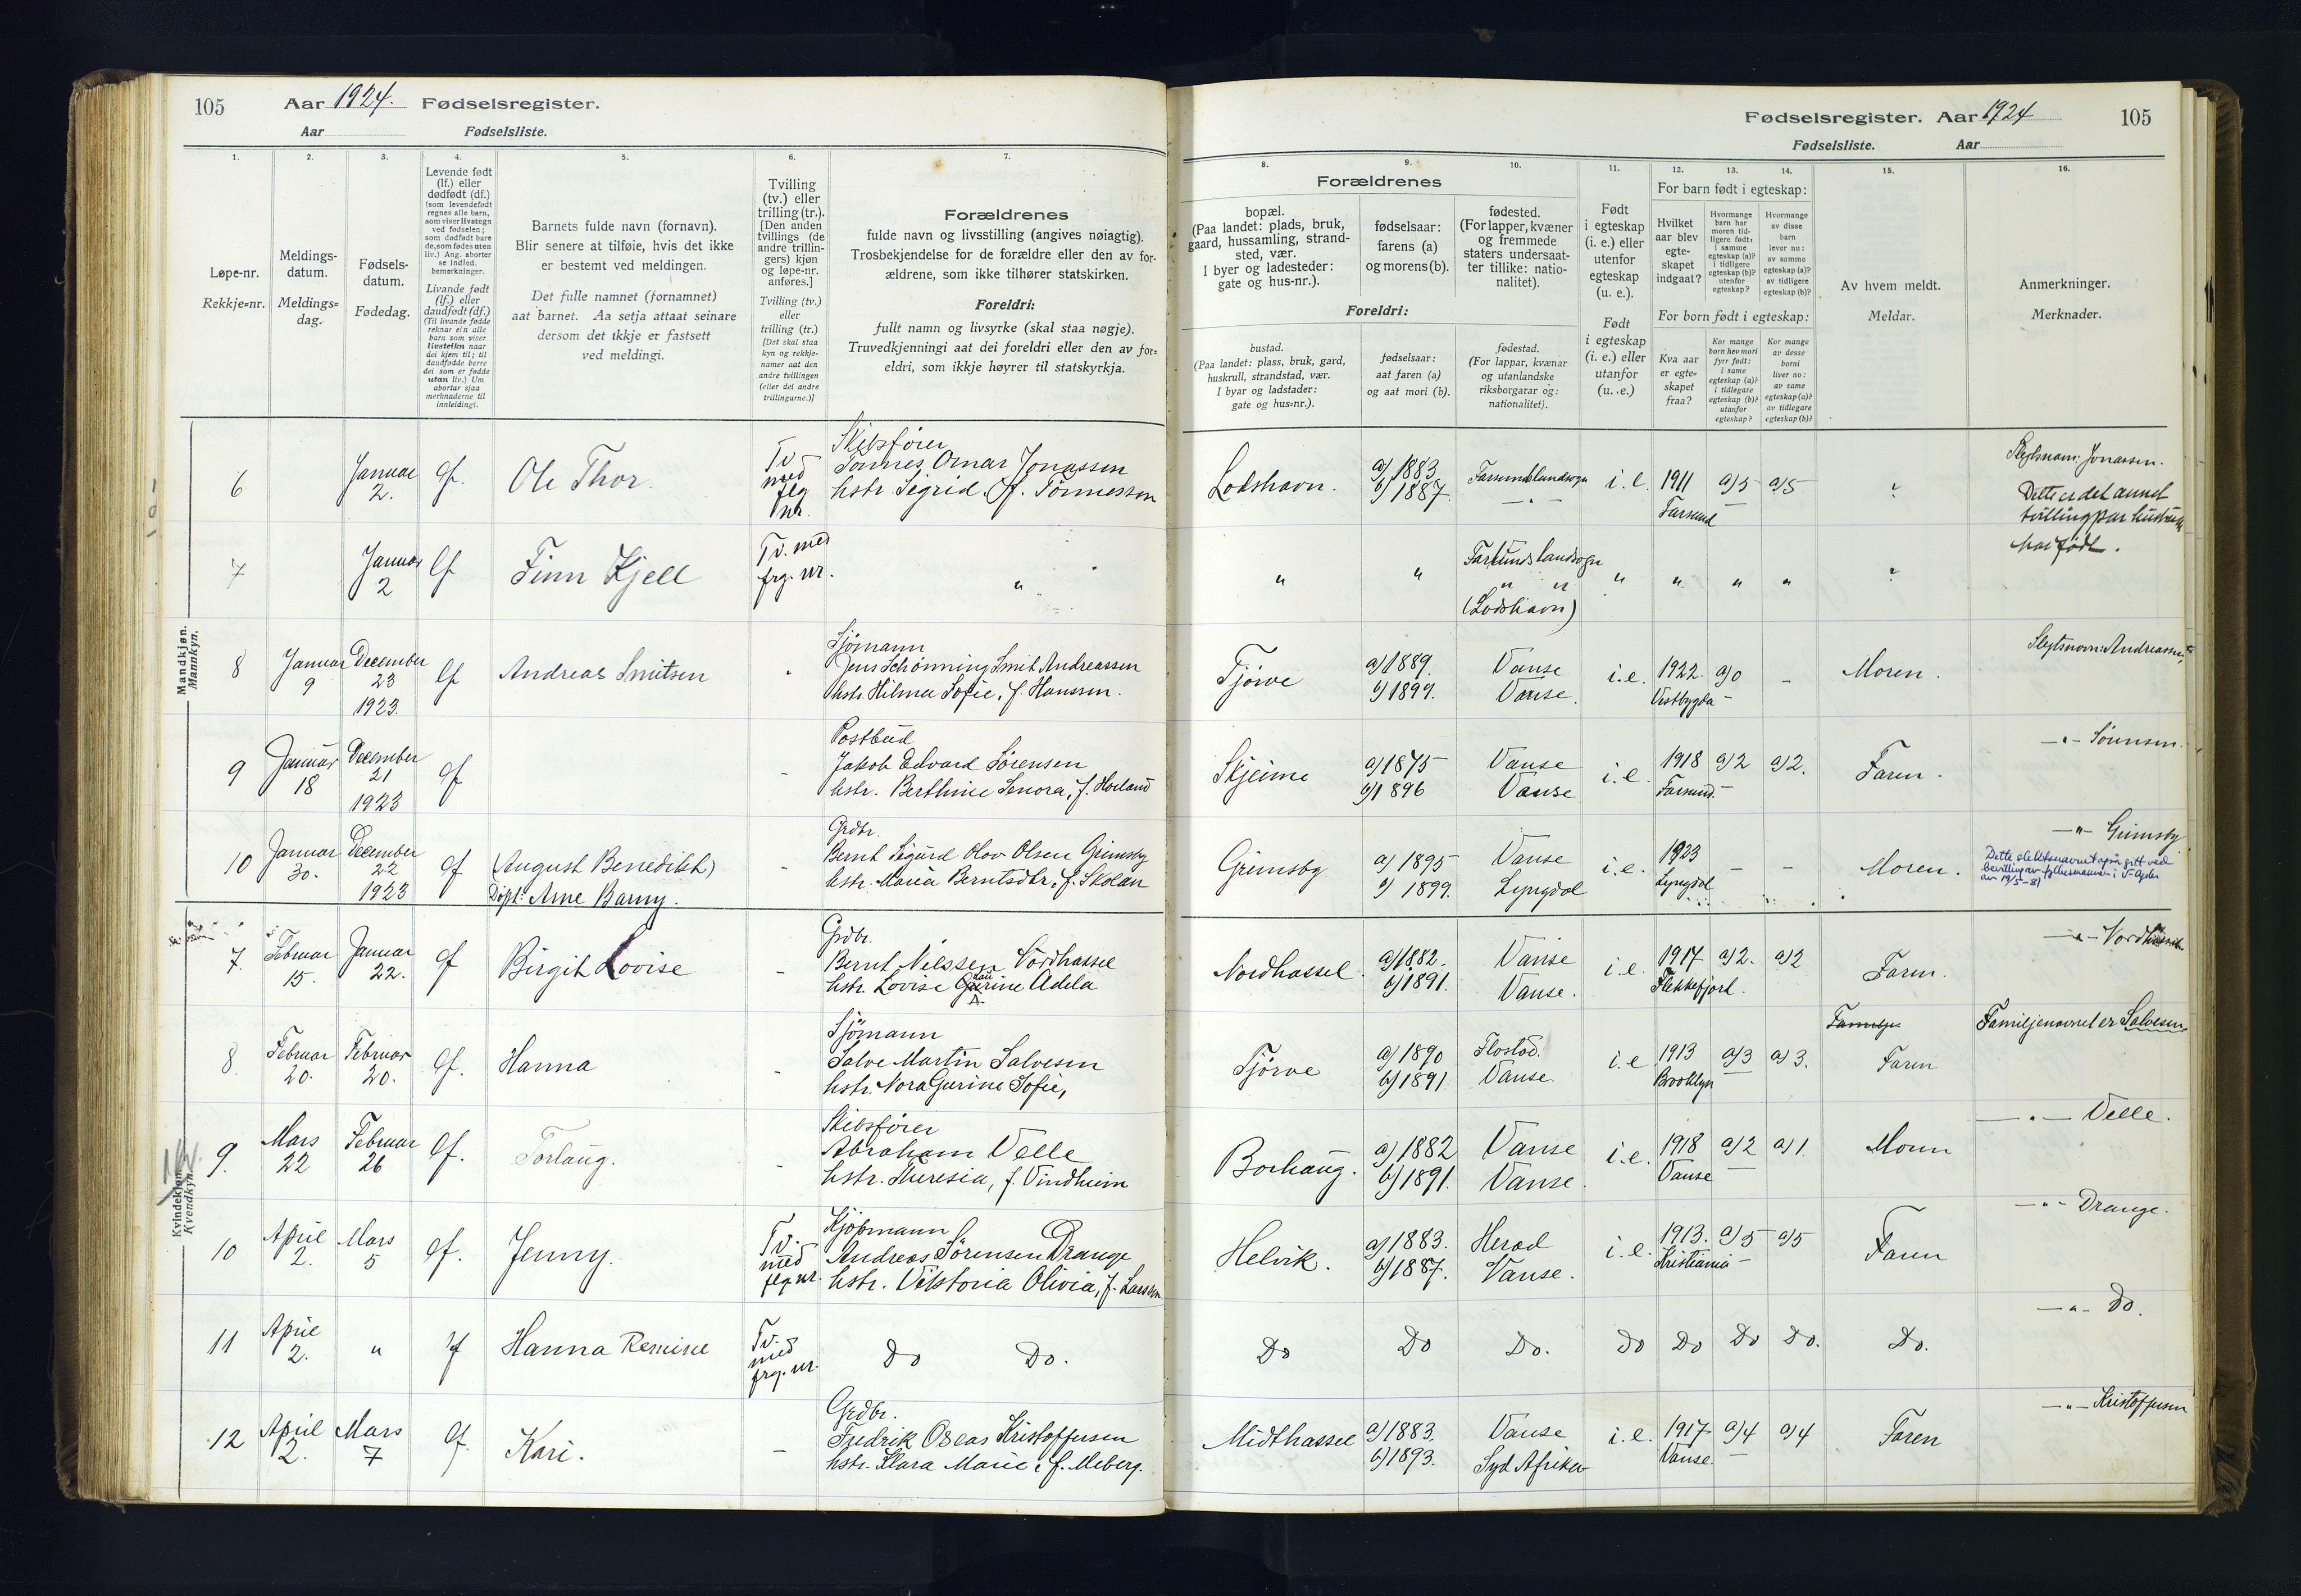 105 Aar 1924. Fødselsregister.
Aar Fødselsliste.
1. 2. 3. 4. 5. 6. 7.
Løpe-nr.
Rekkje=nr.
Meldings-
datum.
Meldings=
dag.
Fødsels-
datum.
Fødedag.
Levende født
(lf.) eller
dødfødt (df.)
(som levendefødt
regnes alle barn,
som viser livstegn
ved fødselen;
som dødfødt bare
de, som fødes uten
liv.) Ang. aborter
se indled.
bemerkninger.
Livande født
(lf.) eller
daudfødt (df.)
(Til livande fødde
reknar ein alle
barn som viser
livsteikn naar
dei kjem til; til
daudfødde berre
dei som er fødde
utan liv.) Um
abortar sjaa
merknaderne til
innleidingi.
Barnets fulde navn (fornavn).
Blir senere at tilføie, hvis det ikke
er bestemt ved meldingen.
Det fulle namnet (fornamnet)
aat barnet. Aa setja attaat seinare
dersom det ikkje er fastsett
ved meldingi.
Tvilling
(tv.) eller
trilling (tr.).
[Den anden
tvillings (de
andre trillin-
gers) kjøn
og løpe-nr.
anføres.]
Tvilling (tv.)
eller
trilling (tr.)
[Det skal staa
kyn og rekkje-
numer aat den
andre tvillingen
(eller dei andre
trillingarne.)]
Forældrenes
fulde navn og livsstilling (angives nøiagtig).
Trosbekjendelse for de forældre eller den av for-
ældrene, som ikke tilhører statskirken.
Foreldri:
fullt namn og livsyrke (skal staa nøgje).
Truvedkjenningi aat dei foreldri eller den av for=
eldri, som ikkje høyrer til statskyrkja.
Mandkjøn.
Mannkyn.
6
Januar
2.
lf.
Ole Thor.
Tv
med
flg
nr.
Skibsfører
Tønnes Omar Jonassen
hstr. Sigrid, f. Tønnessen
7
Januar
2
lf
Finn Kjell
Tv. med
frg. nr.
"
8
Januar
9
December
23
1923.
lf
Andreas Smitsen
Sjømann
Jens Schønning Smit Andreassen
hstr. Hilma Sofie, f. Hanssen.
9
Januar
18
December
21
1923
lf
Postbud
Jakob Edvard Sørensen
hstr. Berthine Lenora, f. Høiland
10
Januar
30.
December
22
1923
lf
(August Benedikt)
Døpt: Arne Barny.
Grdbr.
Bernt Sigurd Olav Olsen Grimsby
hstr. Maria Berntsdtr., f. Skolan
Kvindekjøn.
Kvendkyn.
7.
Februar
15.
Januar
22.
lf
Birgit Lovise
Grdbr.
Bernt Nilssen Nordhassel
hstr. Lovise Gurine Adela
8.
Februar
20.
Februar
20.
lf.
Hanna
Sjømann
Salve Martin Salvesen
hstr. Nora Gurine Sofie,
9.
Mars
22
Februar
26
lf.
Torlaug.
Skibsfører
Abraham Velle
hstr. Theresia, f. Vindheim
10
April
2.
Mars
5
lf.
Jenny.
Tv.
med
flg nr.
Kjøpmann
Andreas Sørensen Drange
hstr. Viktoria Olivia, f. Larssen
11
April
2.
"
lf
Hanna Remine
Tv.
med
frg. nr.
Do Do.
12
April
2.
Mars
7
lf.
Kari.
Grdbr.
Fredrik Oscar Kristoffersen
hstr. Klara Marie, f. Meberg.
Fødselsregister. Aar 1924 105
Fødselsliste. Aar
8. 9. 10. 11. 12. 13. 14. 15. 16.
Forældrenes
bopæl.
(Paa landet: plads, bruk,
gaard, hussamling, strand-
sted, vær.
I byer og ladesteder:
gate og hus-nr.).
fødselsaar:
farens (a)
og morens (b).
fødested.
(For lapper, kvæner
og fremmede
staters undersaat-
ter tillike: natio-
nalitet).
Foreldri:
bustad.
(Paa landet: plass, bruk, gard,
huskrull, strandstad, vær.
I byar og ladstader:
gate og hus=nr.).
fødselsaar:
aat faren (a)
og aat mori (b).
fødestad.
(For lappar, kvænar
og utanlandske
riksborgarar og:
nationalitet).
Født
i egteskap
(i. e.) eller
utenfor
egteskap
(u. e.).
Født
i egteskap
(i. e.) eller
utanfor
(u. e.)
For barn født i egteskap:
Hvilket
aar blev
egte-
skapet
indgaat?
Hvormange
barn har
moren tid-
ligere født:
i samme
egteskap (a)?
i tidligere
egteskap (b)?
utenfor
egteskap?
Hvormange
av disse
barn
lever nu:
av samme
egteskap (a)?
av tidligere
egteskap (b)?
For born født i egteskap:
Kva aar
er egte=
skapet
fraa?
Kor mange
born hev mori
fyrr født:
i same
egteskap (a)?
i tidlegare
egteskap (b)?
utanfor
egteskap?
Kor mange
av desse
borni
liver no:
av same
egteskap (a)?
av tidlegare
egteskap (b)?
Av hvem meldt.
Meldar.
Anmerkninger.
Merknader.
Lodshavn.
a) 1883
b) 1887.
Farsund landsogn
— " —
i. e.
1911
Farsund
a) 5
a) 5
Slegtsnavn: Jonassen.
Dette er det annet
tvillingpar hustruen
har født.
"
"
Farsunds landsogn
" "
(Lodshavn)
"
"
"
"
Tjørve
a) 1889.
b) 1899.
Vanse
Vanse.
i. e.
1922.
Vestbygda
a) 0
-
Moren.
Slegtsnavn: Andreassen
Skjeime
a) 1875
b) 1896
Vanse
Vanse
i. e.
1918
Farsund.
a) 2
a) 2.
Faren.
— " — Sørensen.
Grimsby
a) 1895
b) 1899.
Vanse
Lyngdal
i. e.
1923
Lyngdal
-
-
Moren.
— " — Grimsby
Dette slektsnavnet også gitt ved
bevilling av fylkesmannen i V-Agder
av 19/5-81
Nordhassel.
a) 1882.
b) 1891.
Vanse
Vanse.
i. e.
1917
Flekkefjord.
a) 2.
a) 2
Faren.
— " — Nordhassel
Tjørve
a) 1890
b) 1891.
Flostad.
Vanse.
i. e
1913
Brooklyn
a) 3
a) 3.
Familje
Faren
Familjenavnet er Salvesen
Borhaug.
a) 1882
b) 1891.
Vanse
Vanse.
i. e.
1918
Vanse
a) 2
a) 1.
Moren
— " — Velle.
Helvik.
a) 1883.
b) 1887.
Herad
Vanse.
i. e.
1913.
Kristiania
a) 5
a) 5
Faren
— " — Drange.
Do
Do
Do.
Do
Do
Do
Do.
Do.
— " — Do.
Midthassel
a) 1883.
b) 1893.
Vanse
Syd Afrika
i. e.
1917
Vanse.
a) 4
a) 4
Faren
— " — Kristoffersen